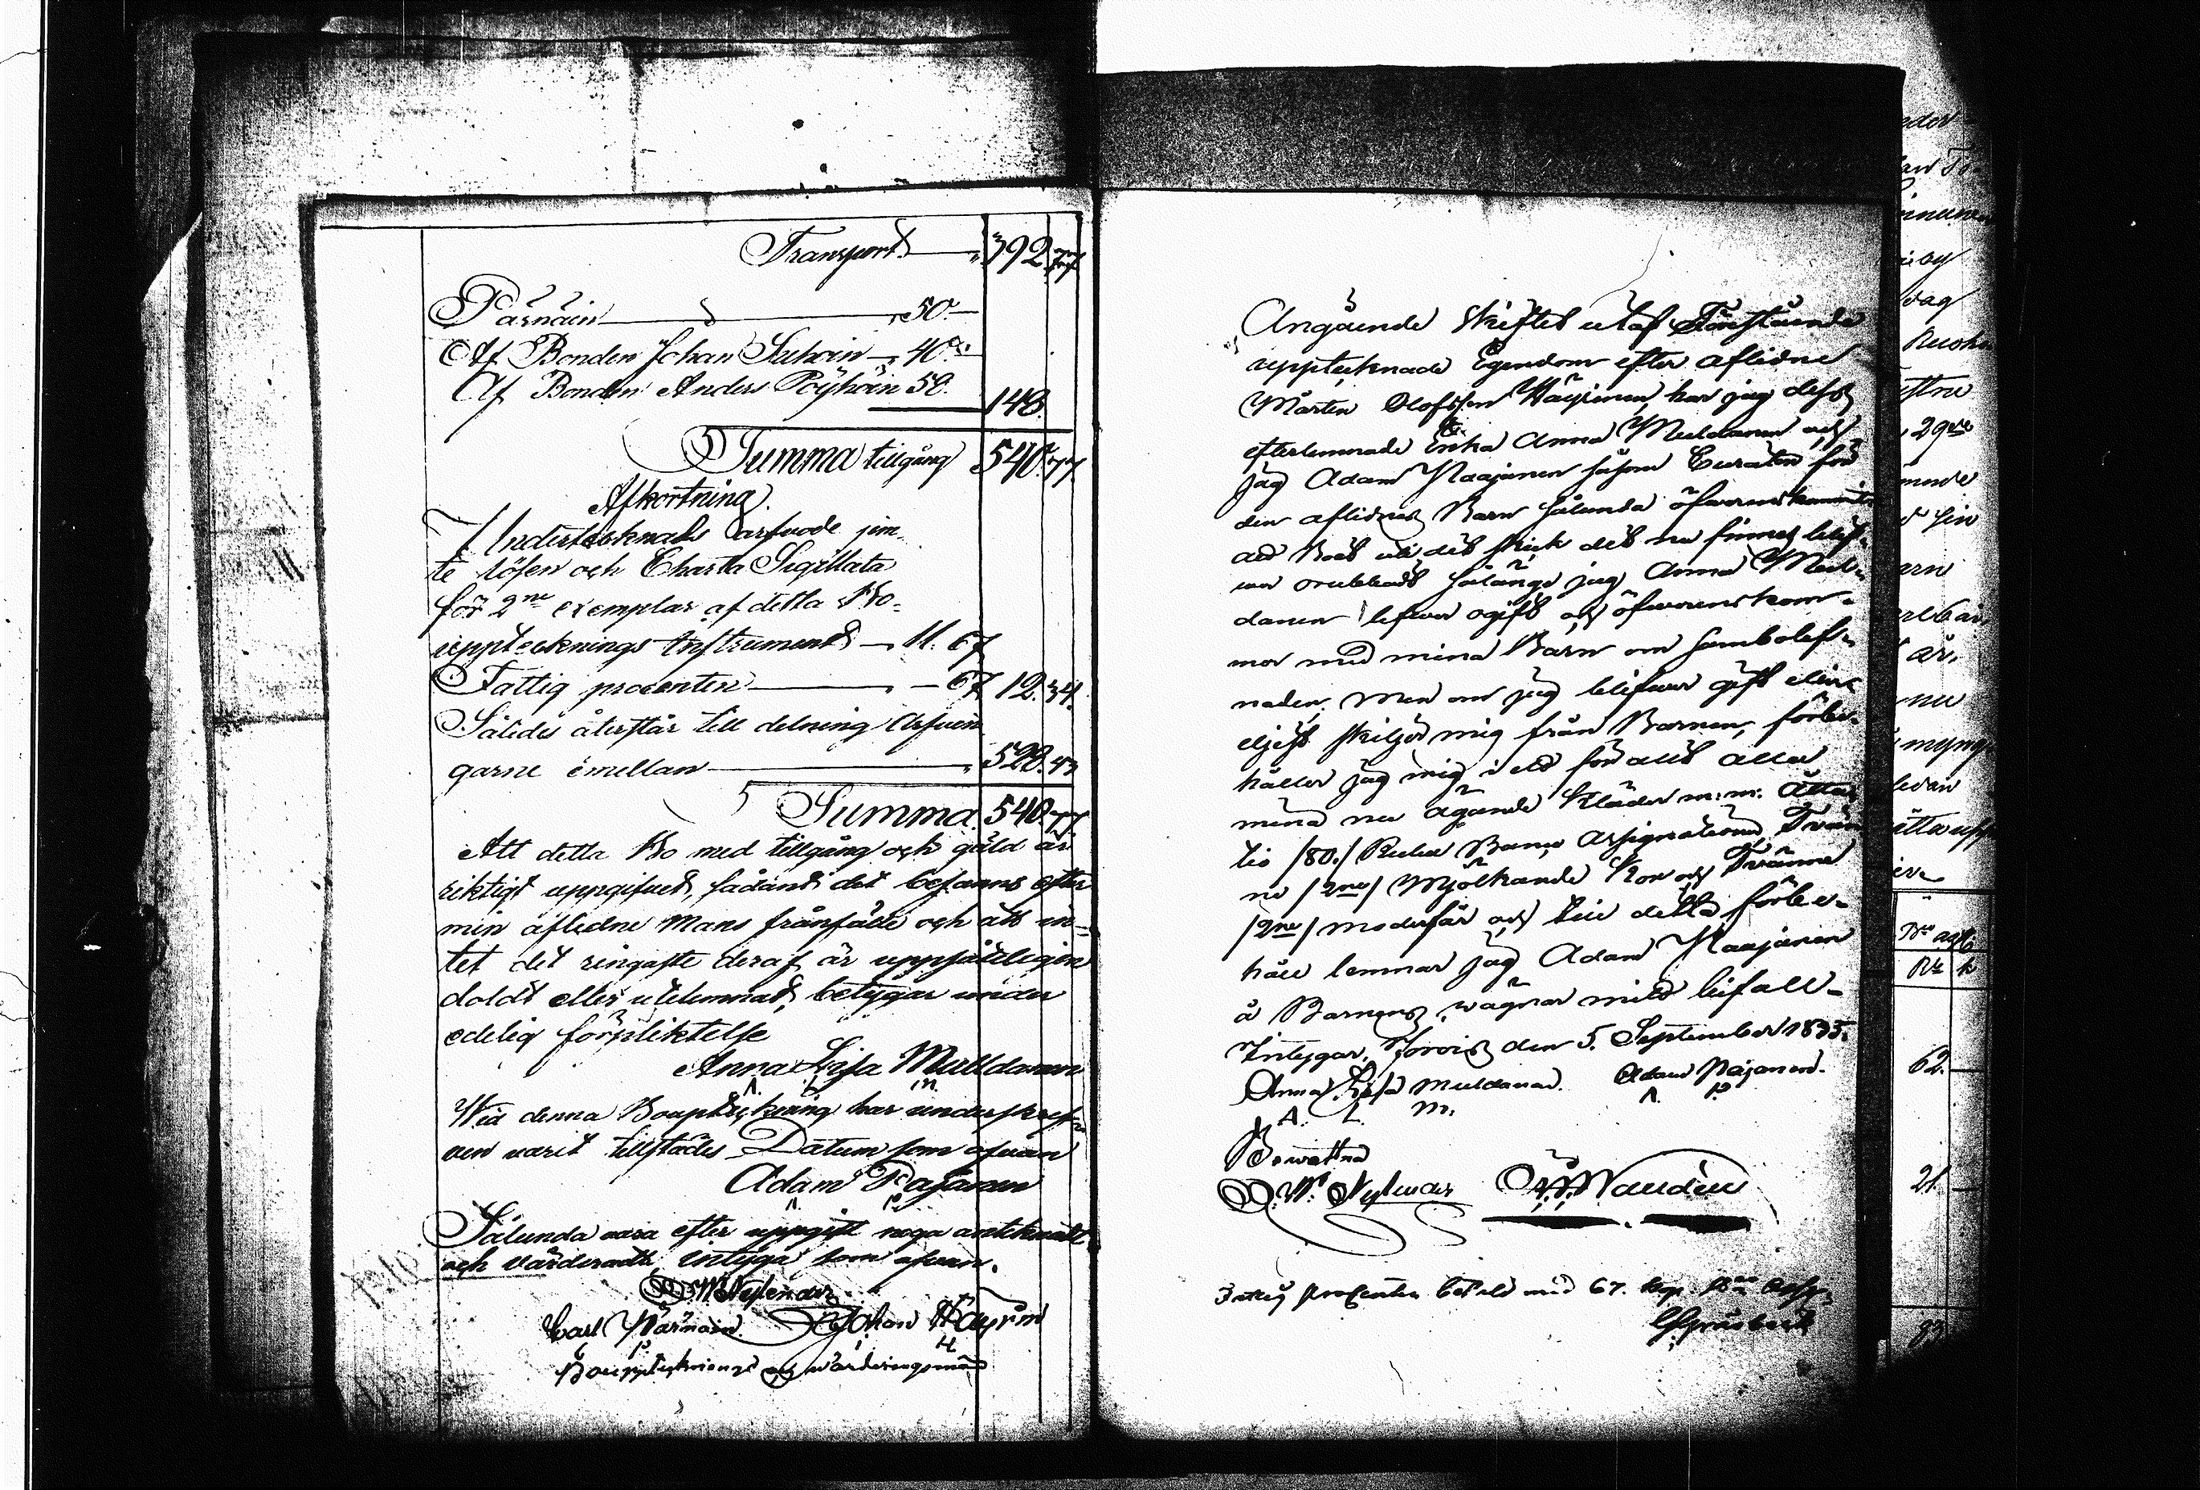 Transport — 392.77
Pärnäin — d — 50 —
Af Bonden Johan Suhoin — 40 —
Af Bonden Anders Pöyhöin 50. 148.
Summa tillgång 540.77
Afkortning.
Undertecknads arfvode jem-
te lösen och Charta Sigillata
för 2ne exemplar af detta Bo-
upptecknings Instrument — 11.67
Fattig procenten — 67 12.34.
Således återstår till delning Arfvin
garne emellan — 528.43
Summa 540.77
Att detta Bo med tillgång och gäld är
riktigt uppgifvet, sådant det befanns efter
min aflidne Mans frånfälle och att in-
tet det ringaste deraf är uppsåteligen
doldt eller utelemnadt, betygar under
edelig förpliktelse
Anna Lisa Mulldanen
A L M
Wid denna Bouppteckning har underskref-
ven varit tillstädes Datum som ofvan
Adam Rajanen
Sålunda vara efter uppgift noga antecknadt
och värderadt, intyga som ofvan.
W Nylender
Carl Pärnäin Johan Häyrin
C P J H
Bouppteknings och wärderingsmän
Angående skiftet utaf Förestående
upptecknade Egendom efter aflidne
Mårten Olofsson Häyrinen, har jag dess
efterlemnade Enka Anna Muldanen och
jag Adam Raajanen såsom Curator för
den aflidnes Barn sålunda öfwerenskommit
att Boet uti det skick det nu finnes blif-
wer orubbadt sålänge jag Anna Mul-
danen lefwer ogift och öfwerenskom-
mer med mina Barn om sambolef-
naden, men om jag blifwer gift eller
eljest skiljer mig från Barnen, förbe-
håller jag mig i ett för allt alla
mina nu ägande Kläder m:m: Åttat
tio /80./ Rubel Banco Assignationer, Tvän
ne /2ne/ Mjölkande Kor och Tvänne
/2ne/ moderfår och till detta förbe-
håll lemnar jag Adam Raajanen
å Barnens wägnar mitt bifall-
Intygar, Jorois den 5. September 1835.
Anna Lisa Muldanen. Adam Rajanen.
A. L. M.
Bewittna
W. Nylender
Fattig procenten betald med 67. kop.
62.
21
83